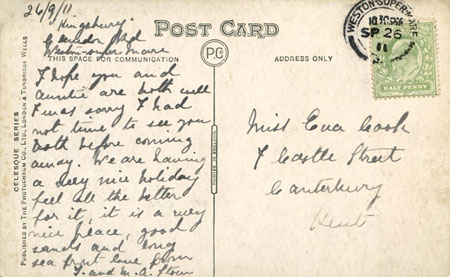 26/9/11
"Kingsbury"
Rd
Weston-super-mare
POST CARD
P.C
THIS SPACE FOR COMMUNICATION
ADDRESS ONLY
I hope you and
auntie are both well
I was sorry I had
not time to see you
both before coming
away. We are having
a very nice holiday
feel all the better
for it, it is a very
nice place, good
sands and long
sea front love from
F. and M. A.
CELESQUE SERIES
PUBLISHED BY THE PHOTOCHROM CO., LTD., LONDON & TUNBRIDGE WELLS
WESTON-SUPER-MARE
SP 26
11
HALF PENNY
Miss Eva Cook
7 Castle Street
Canterbury
Kent